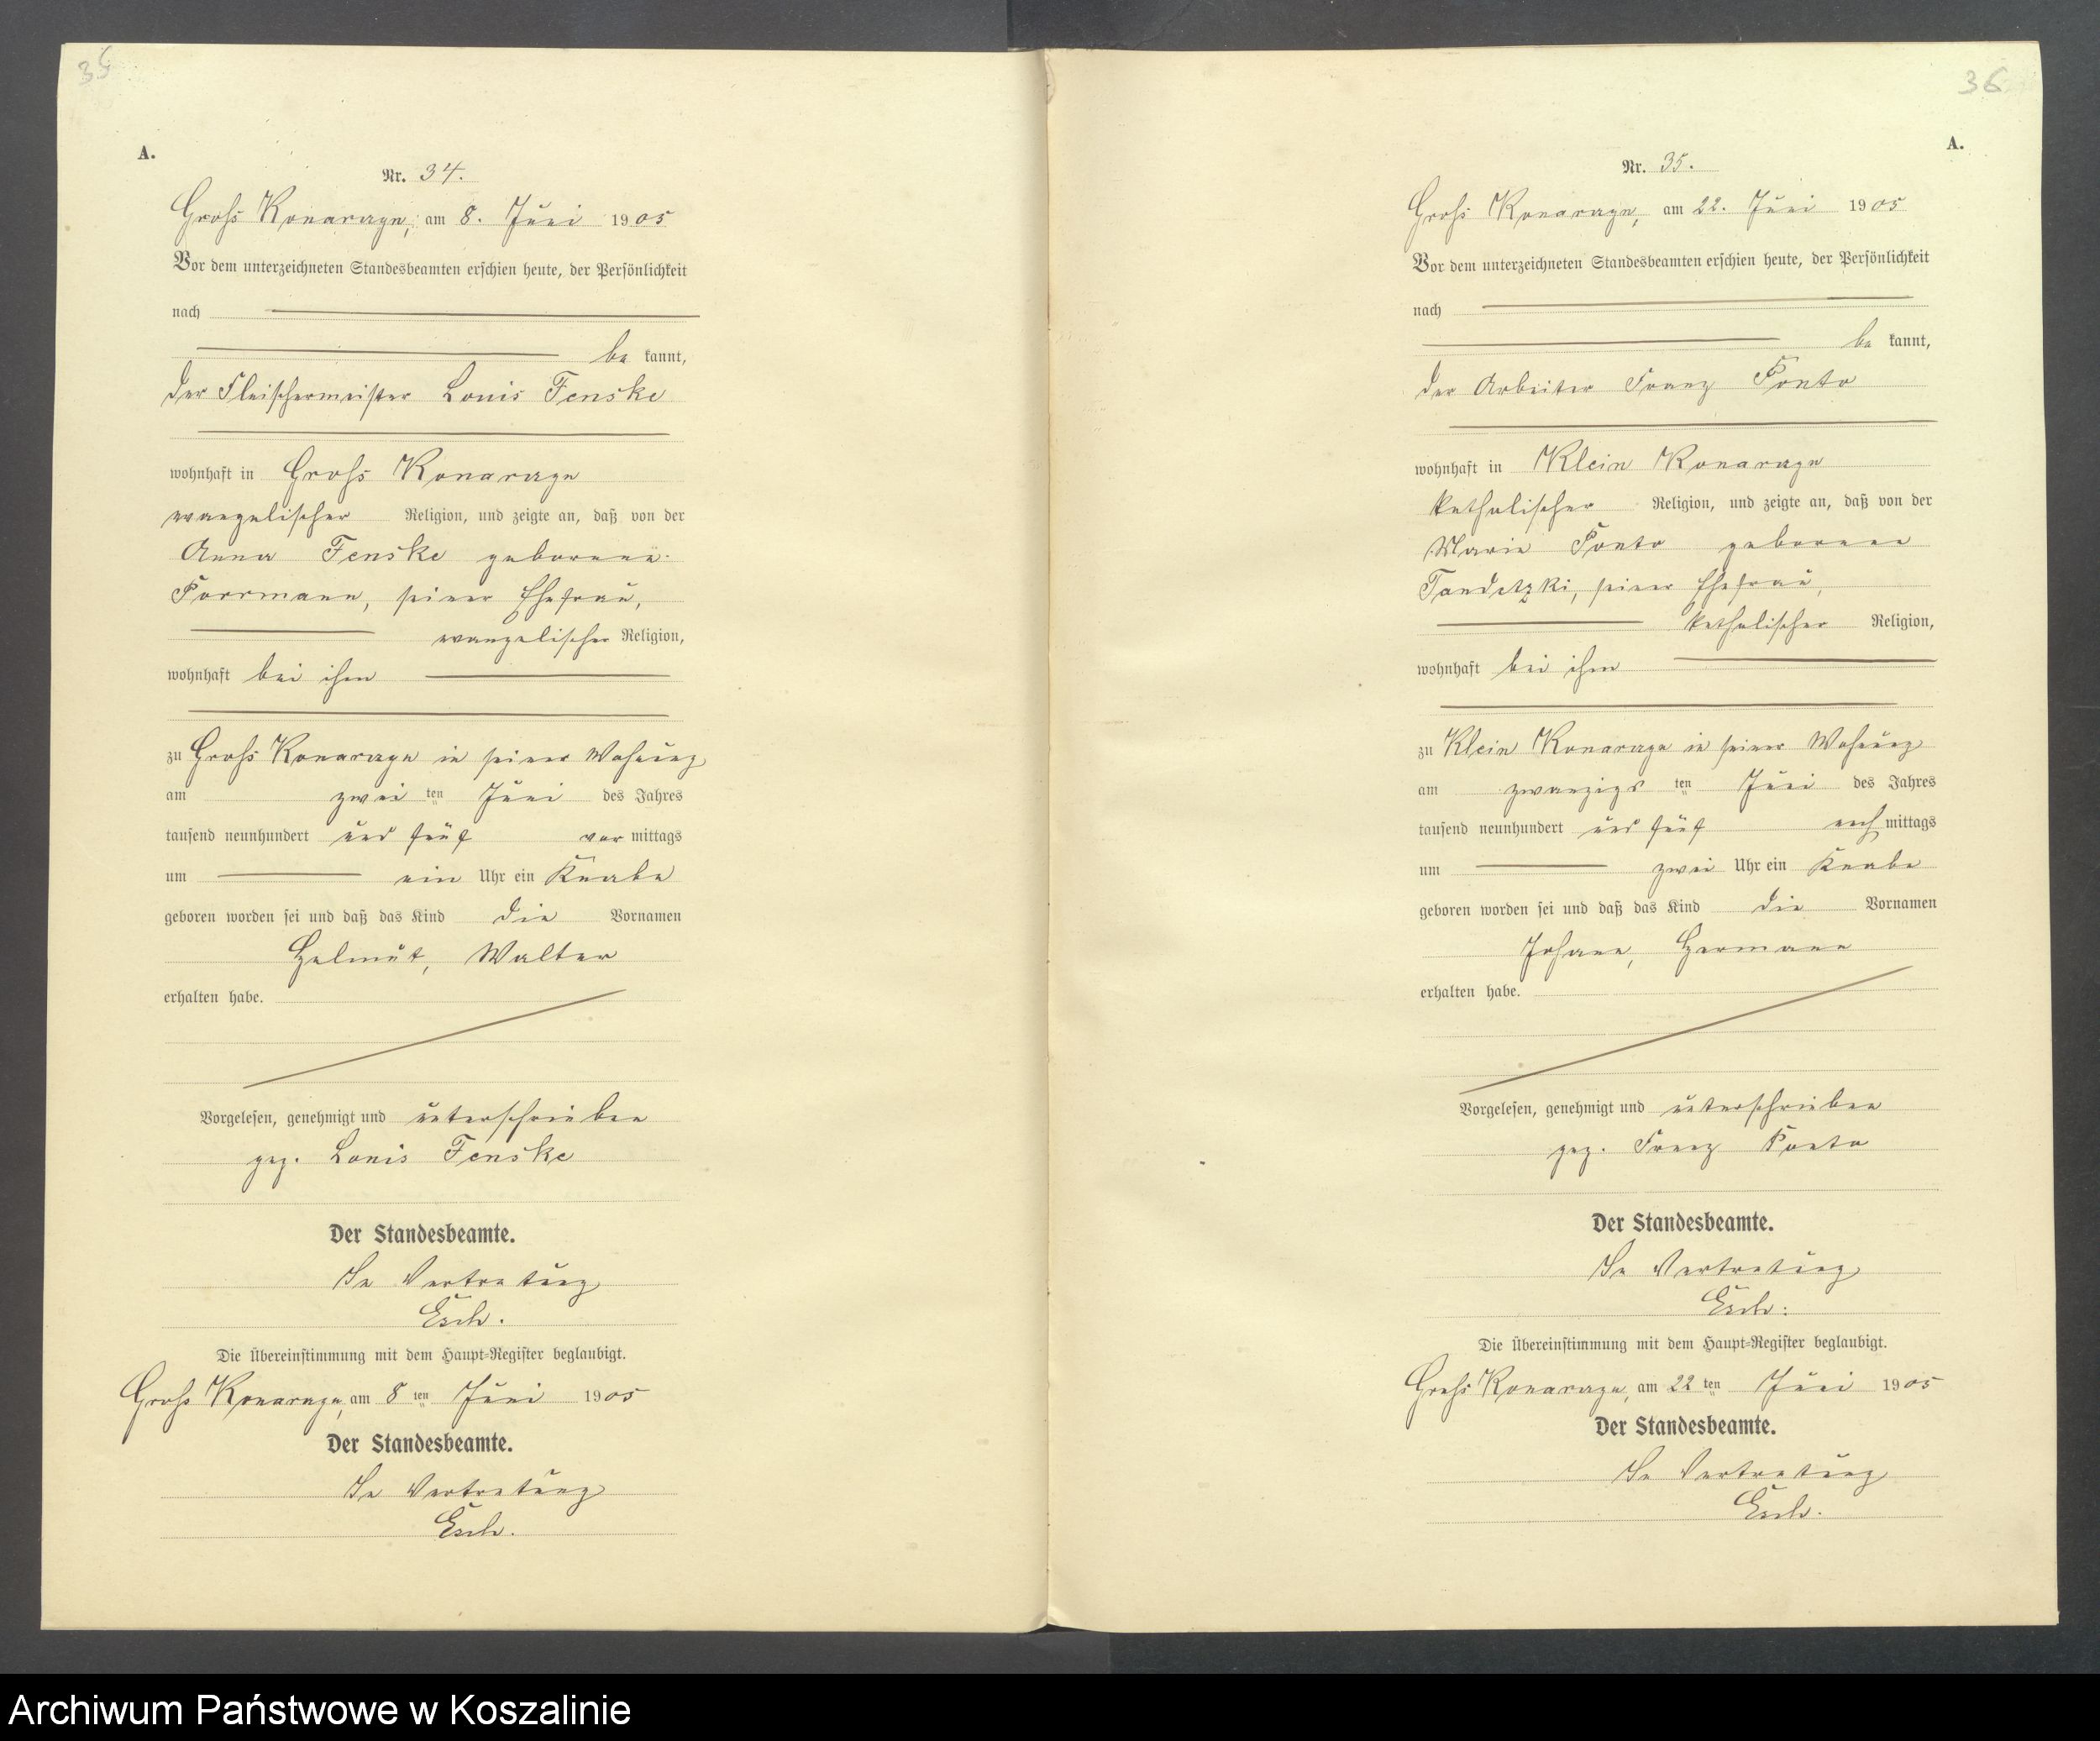 35
A.
Nr. 34.
Groß Konarczyn, am 8. Juni 1905
Vor dem unterzeichneten Standesbeamten erschien heute, der Persönlichkeit
nach
be kannt,
der Fleischermeister Louis Fenske
wohnhaft in Groß Konarczyn
evangelischer Religion, und zeigte an, daß von der
Anna Fenske geborene
Porrmann, seiner Ehefrau,
evangelischer Religion,
wohnhaft bei ihm
zu Groß Konarczyn in seiner Wohnung
am zwei ten Juni des Jahres
tausend neunhundert und fünf vor mittags
um ein Uhr ein Knabe
geboren worden sei und daß das Kind die Vornamen
Helmut, Walter
erhalten habe.
Vorgelesen, genehmigt und unterschrieben
gez. Louis Fenske
Der Standesbeamte.
In Vertretung
Esch.
Die Übereinstimmung mit dem Haupt-Register beglaubigt.
Groß Konarczyn, am 8 ten Juni 1905
Der Standesbeamte.
In Vertretung
Esch.
36
A.
Nr. 35.
Groß Konarczyn, am 22. Juni 1905
Vor dem unterzeichneten Standesbeamten erschien heute, der Persönlichkeit
nach
be kannt,
der Arbeiter Franz Ponto
wohnhaft in Klein Konarczyn
katholischer Religion, und zeigte an, daß von der
Marie Ponto geborene
Tandetzki, seiner Ehefrau,
katholischer Religion,
wohnhaft bei ihm
zu Klein Konarczyn in seiner Wohnung
am zwanzigs ten Juni des Jahres
tausend neunhundert und fünf nach mittags
um zwei Uhr ein Knabe
geboren worden sei und daß das Kind die Vornamen
Johann, Hermann
erhalten habe.
Vorgelesen, genehmigt und unterschrieben
gez. Franz Ponto
Der Standesbeamte.
In Vertretung
Esch.
Die Übereinstimmung mit dem Haupt-Register beglaubigt.
Groß Konarczyn, am 22 ten Juni 1905
Der Standesbeamte.
In Vertretung
Esch.
Archiwum Państwowe w Koszalinie